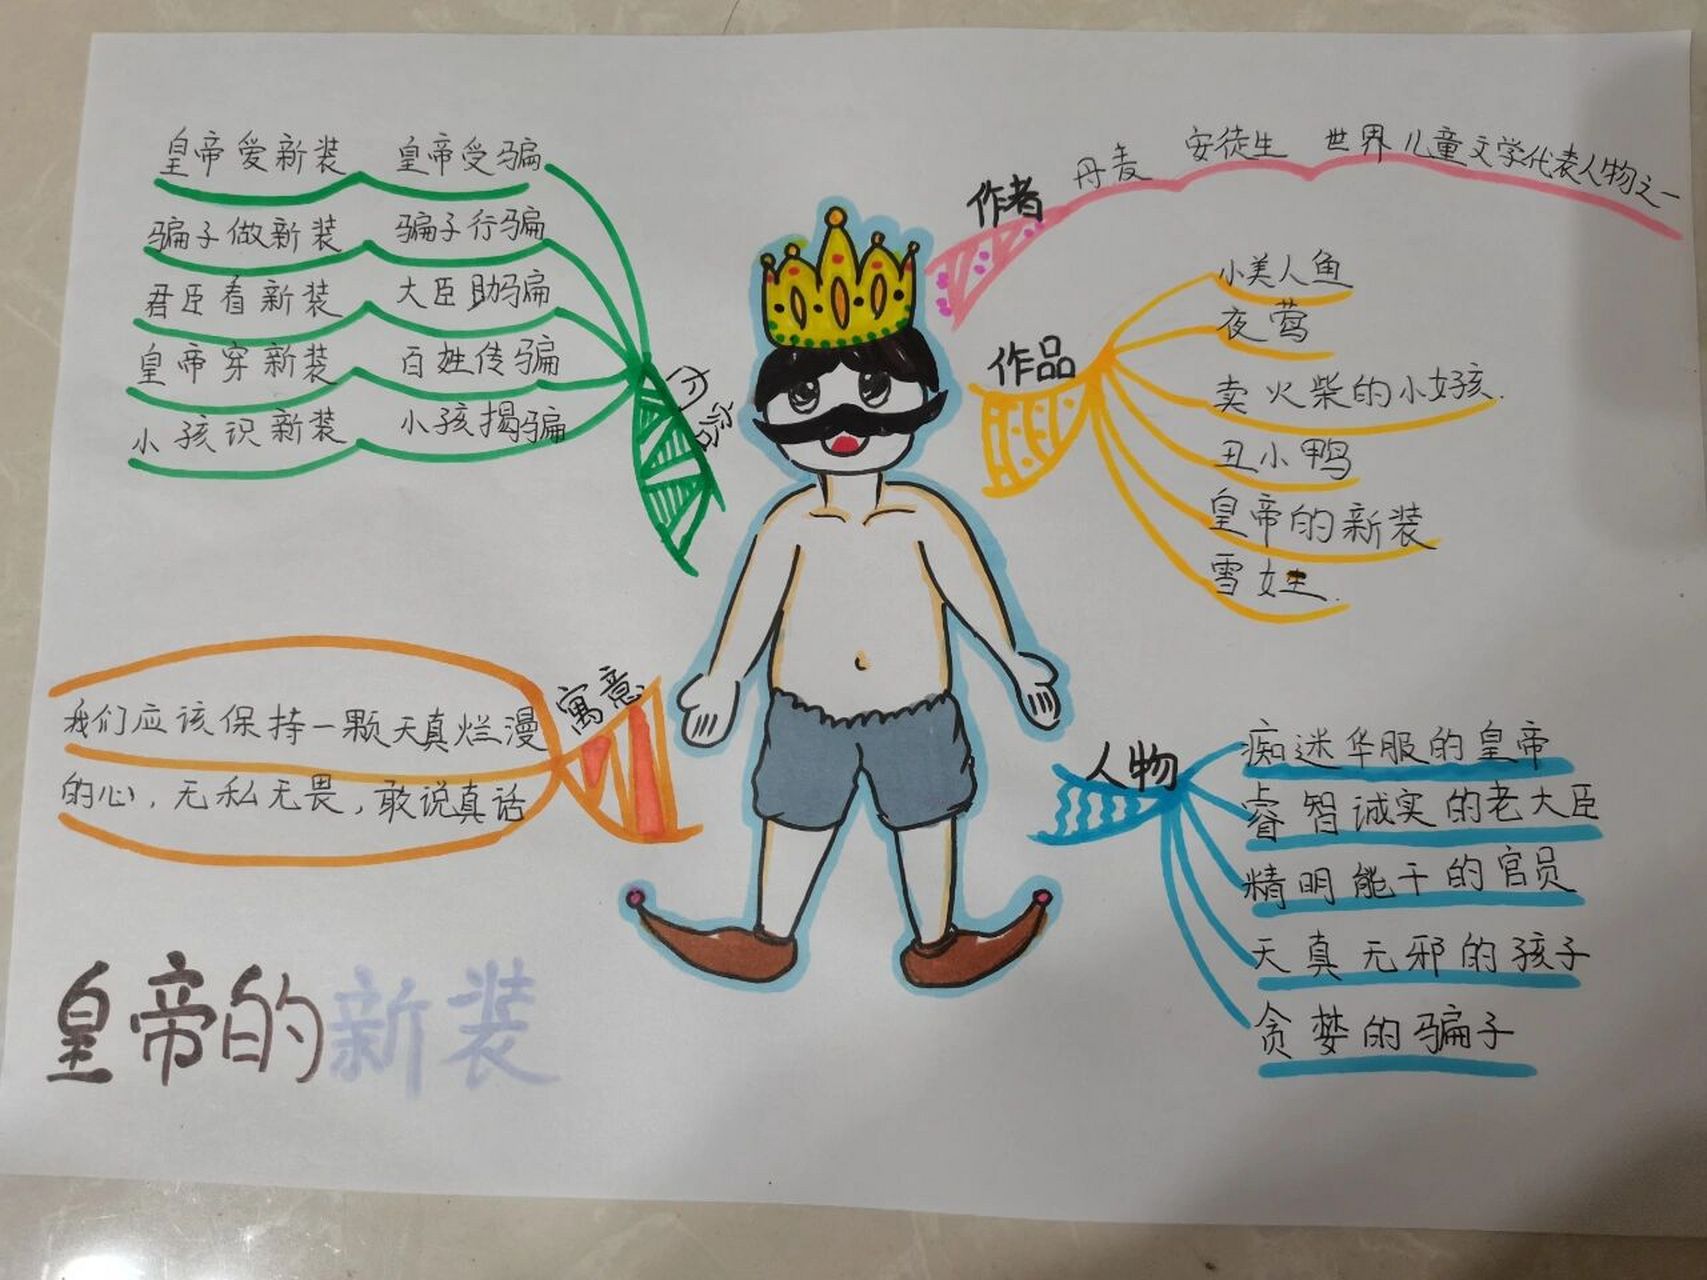 皇帝爱新装 皇帝受骗
骗子做新装 骗子行骗
君臣看新装 大臣助骗
皇帝穿新装 百姓传骗
小孩识新装 小孩揭骗
内容
作者
丹麦 安徒生 世界儿童文学代表人物之一
作品
小美人鱼
夜莺
卖火柴的小女孩.
丑小鸭
皇帝的新装
雪女王.
寓意
我们应该保持一颗天真烂漫
的心，无私无畏，敢说真话
人物
痴迷华服的皇帝
睿智诚实的老大臣
精明能干的官员
天真无邪的孩子
贪婪的骗子
皇帝的新装